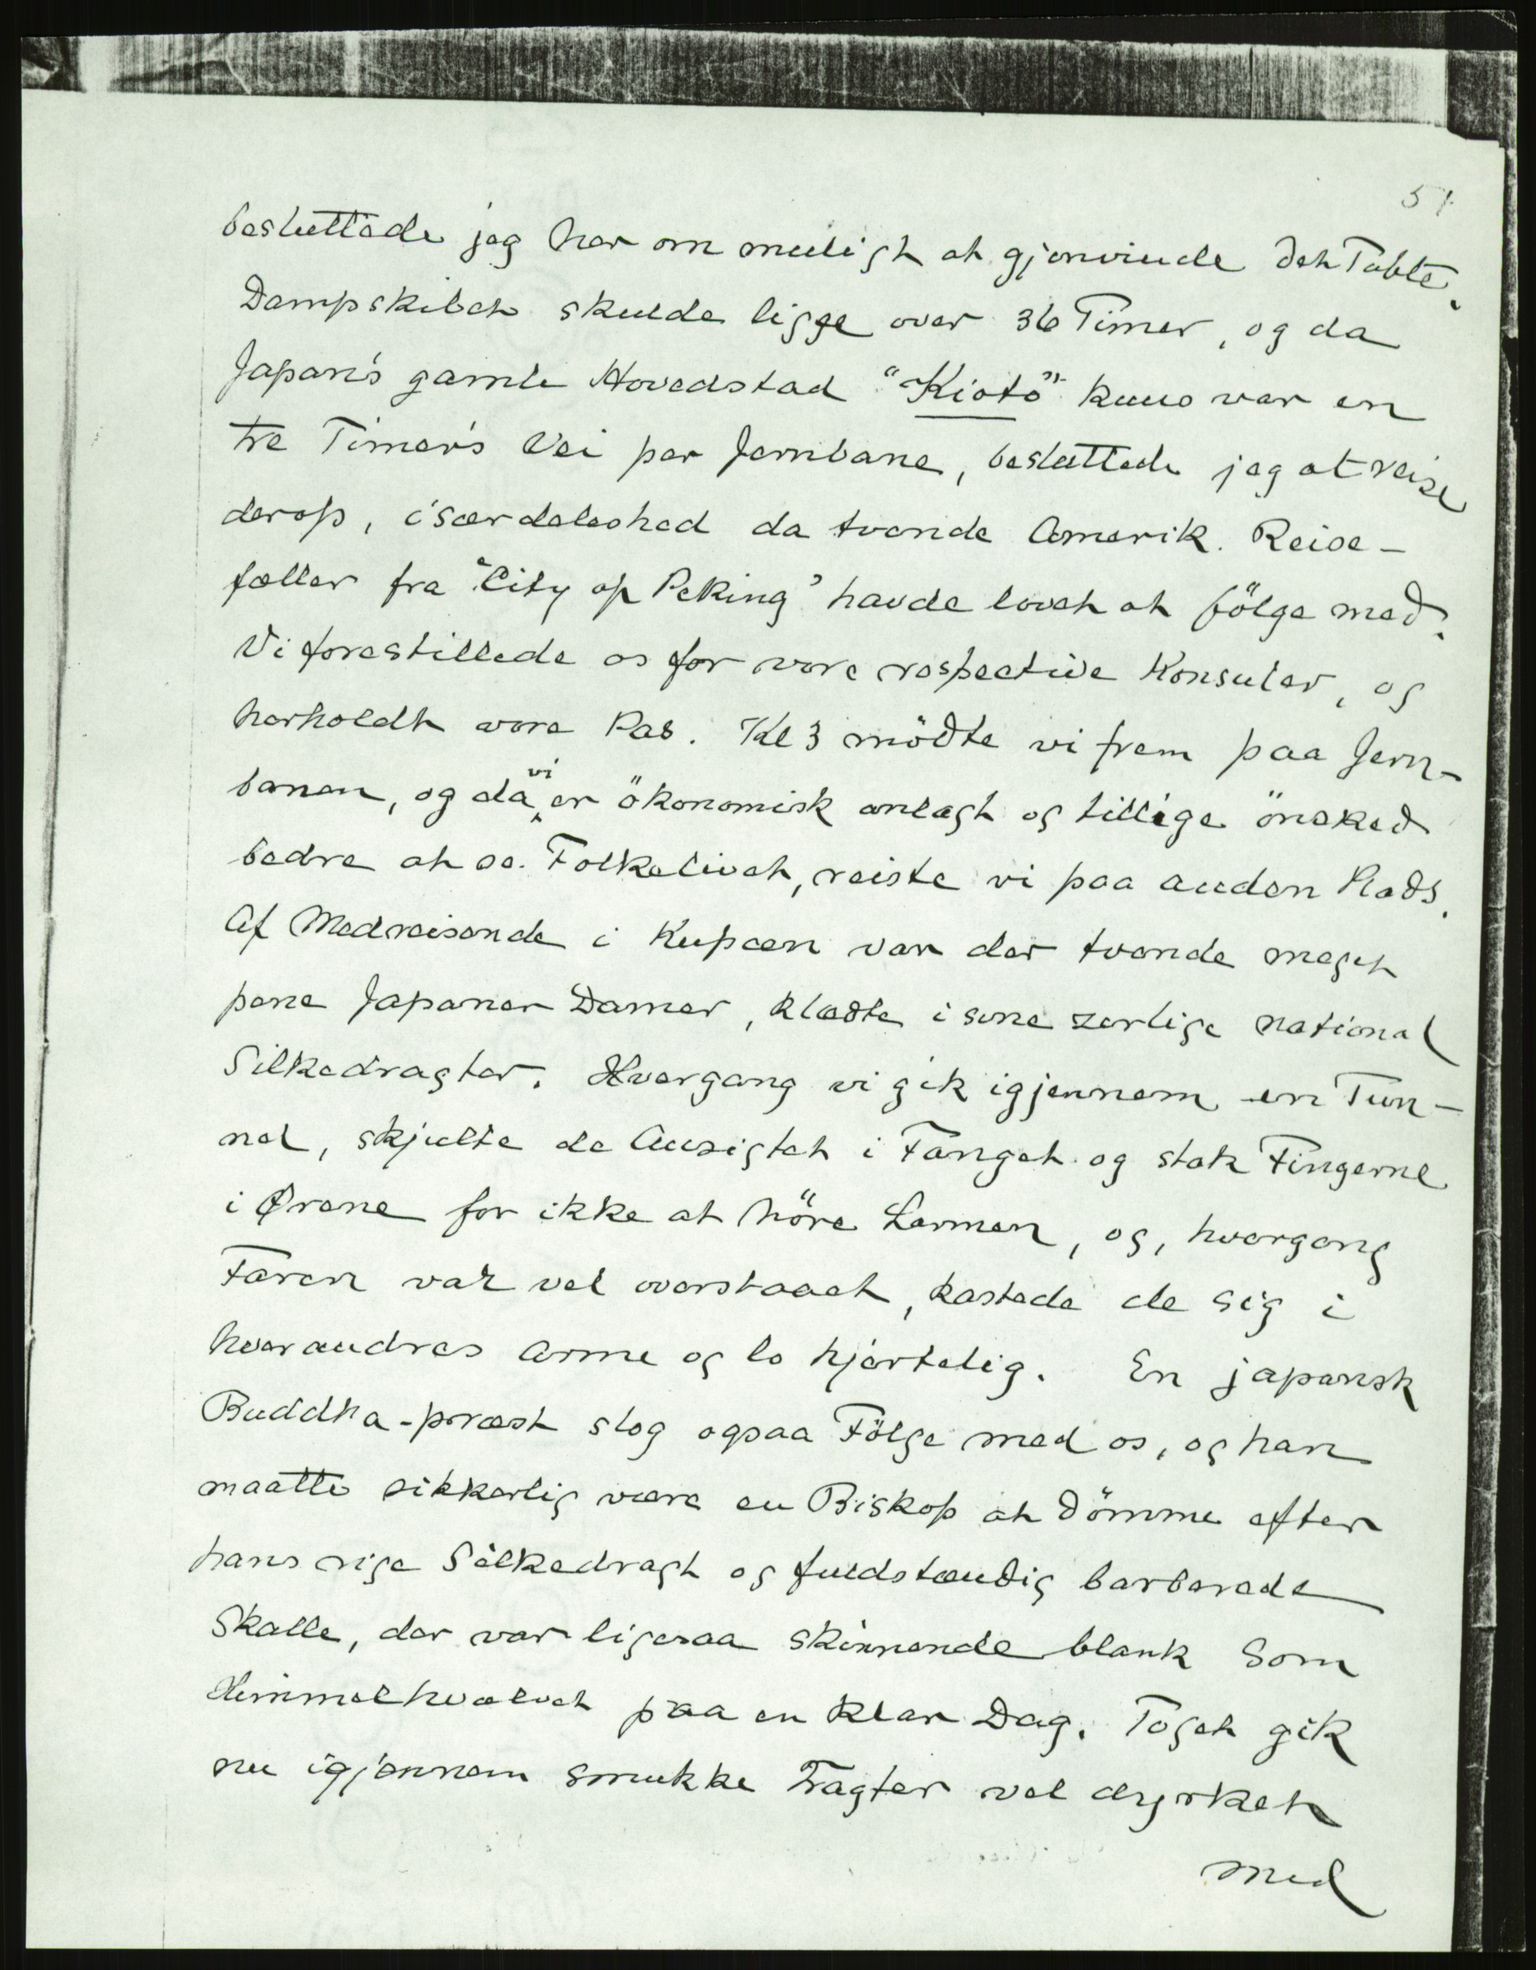 51.
besluttede jeg her om muligt at gjenvinde det Tabte.
Dampskibet skulde ligge over 36 Timer, og da
Japan's gamle Hovedstad "Kioto" kuns var en
tre Timer's Vei per Jernbane, besluttede jeg at reise
derop, isærdeleshed da tvende Amerik. Reise-
fæller fra "City of Peking" havde lovet at fölge med.
Vi forestillede os for vore respective Konsuler, og
herholdt vore Pas. Kl 3 mödte vi frem paa Jern-
banen, og da vi er ökonomisk anlagt og tillige önsked
bedre at se Folkelivet, reiste vi paa anden Plads.
Af Medreisende i Kupeen var der tvende meget
pene Japaner Damer, klædte i sine zerlige national
Silkedragter. Hvergang vi gik igjennem en Tun-
nel, skjulte de Ansigtet i Fanget og stak Fingerne
i Ørene for ikke at höre Larmen, og, hvergang
Faren var vel overstaaet, kastede de sig i
hverandres Arme og lo hjertelig. En japansk
Buddha-præst slog ogsaa Fölge med os, og han
maatte sikkerlig være en Biskop at dömme efter
hans rige Silkedragt og fuldstændig barberede
Skalle, der var ligesaa skinnende blank som
Himmelhvælvet paa en klar Dag. Toget gik
nu igjennem smukke Tragter vel dyrket
med